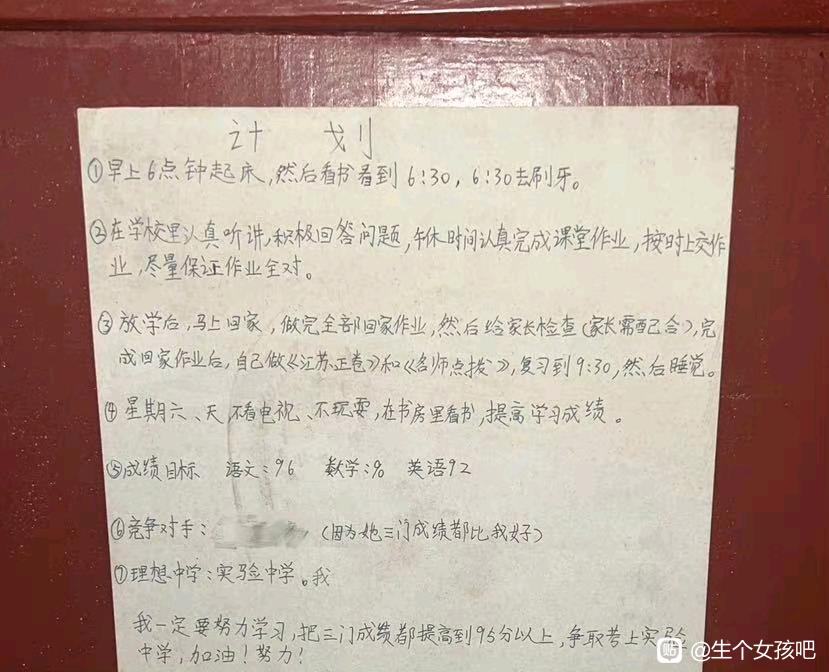 计 划
①早上6点钟起床,然后看书看到6:30,6:30去刷牙。
②在学校里认真听讲,积极回答问题,午休时间认真完成课堂作业,按时上交作
业,尽量保证作业全对。
③放学后,马上回家,做完全部回家作业,然后给家长检查(家长需配合),完
成回家作业后,自己做《江苏正卷》和《名师点拨》,复习到9:30,然后睡觉。
④星期六、天,不看电视、不玩耍,在书房里看书,提高学习成绩。
⑤成绩目标 语文:96 数学:96 英语92
⑥竞争对手: (因为她三门成绩都比我好)
⑦理想中学:实验中学。我
我一定要努力学习,把三门成绩都提高到95分以上,争取考上实验
中学,加油!努力!
贴 @生个女孩吧